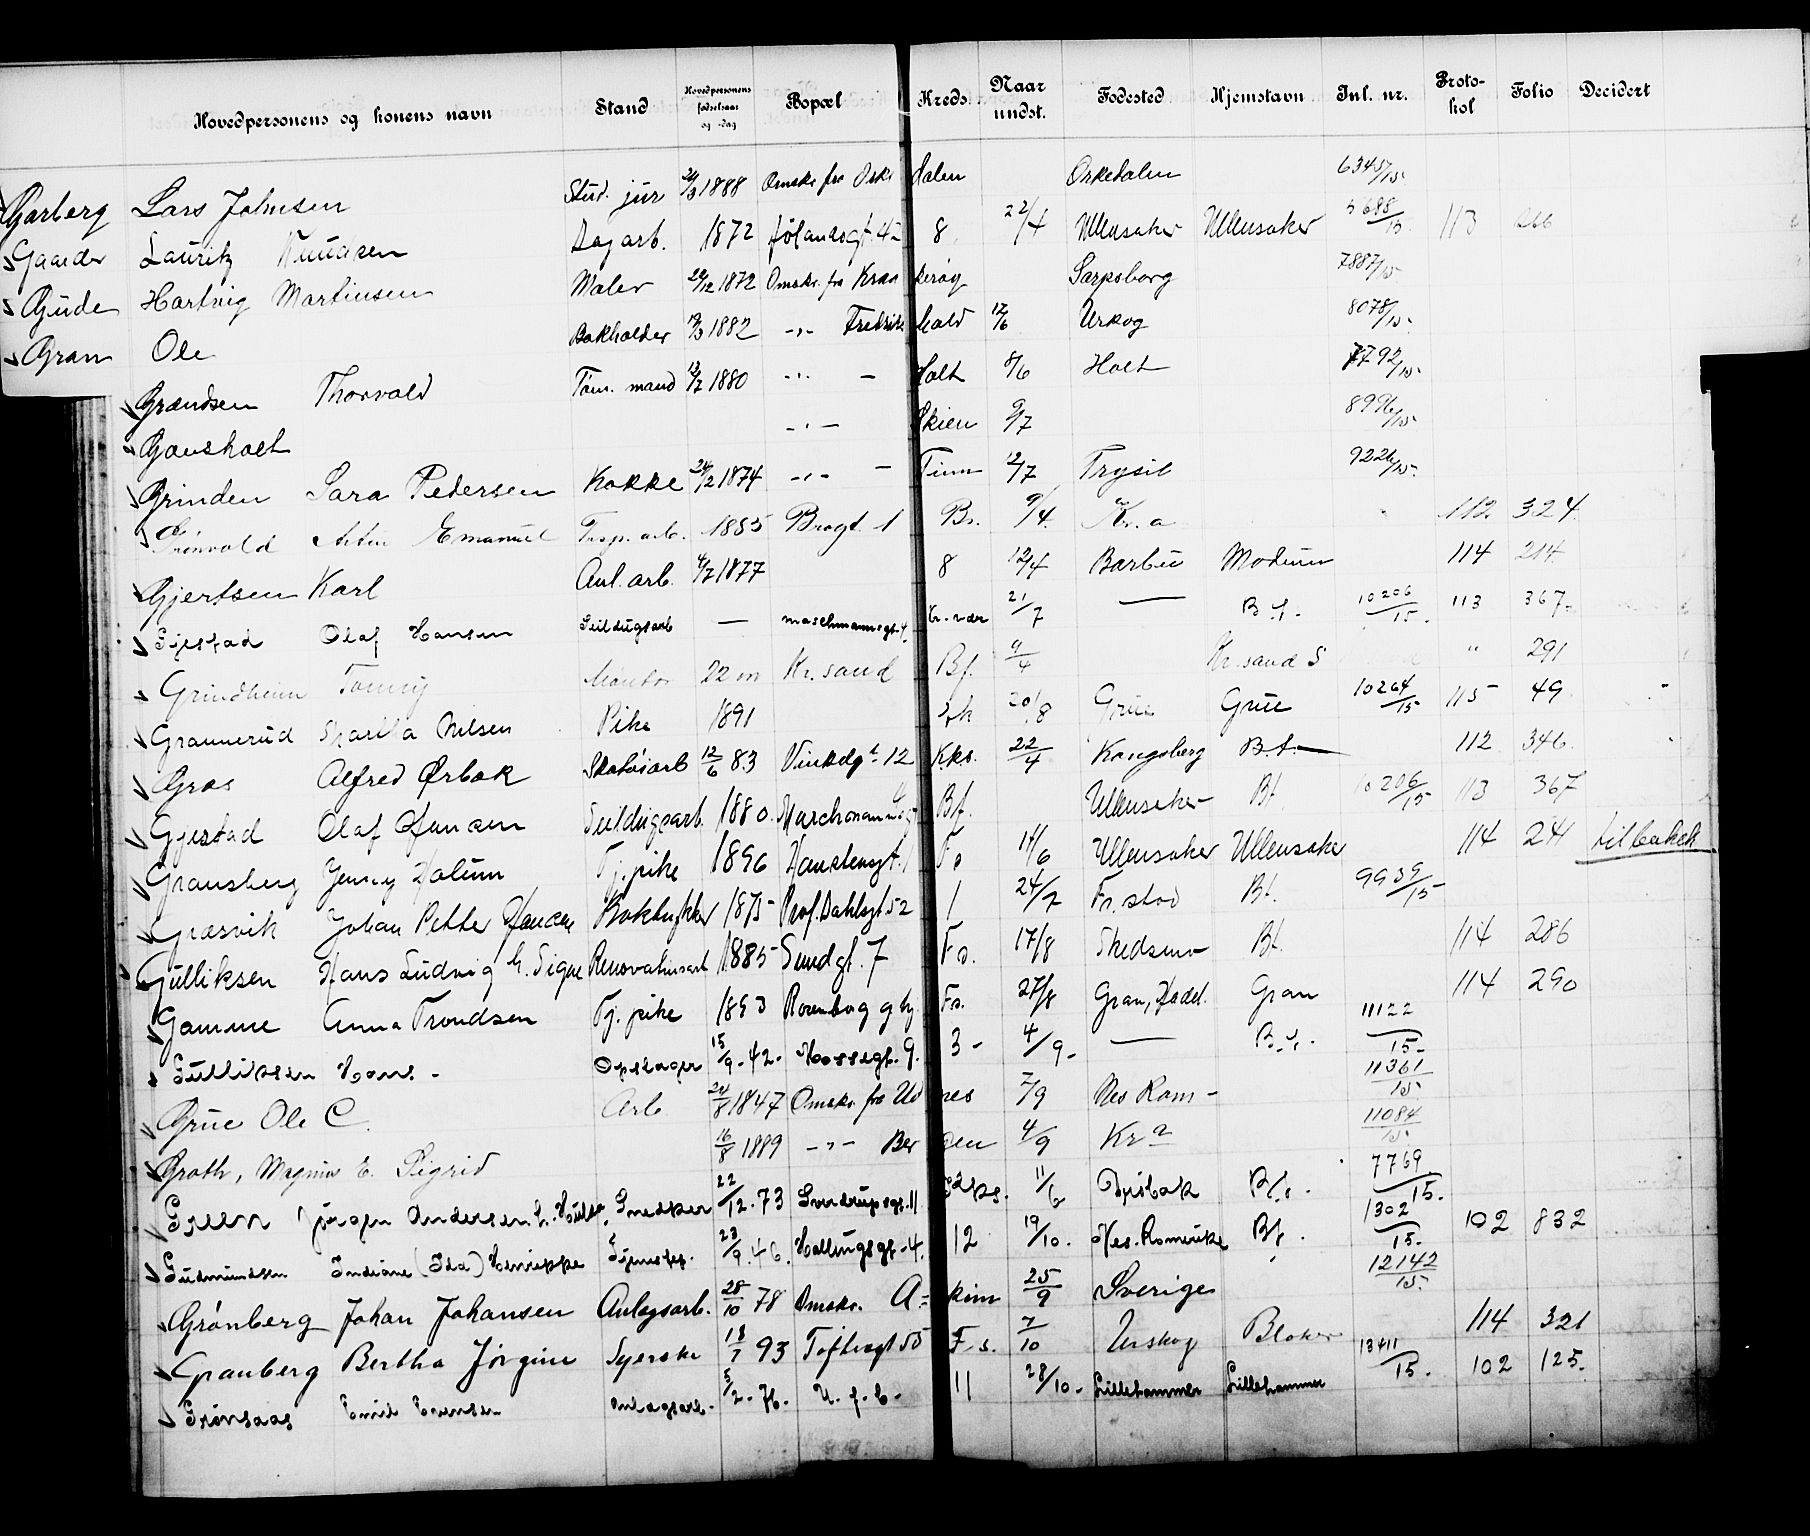 Hovedpersonens og konens navn Stand Hovedpersonens fødselsaar og -dag Bopæl Kreds. Naar undst. Fødested Hjemstavn Inl. nr. Protokol Folio Decidert
Garberg Lars Johnsen Stud. jur 24/3 1888 Omsk. fra Orke dalen Orkedalen 6345/15
Gaarder Lauritz Knudsen Dagarb. 1872 8 22/4 Ullensaker Ullensaker 5688/15 113 266
Gude Hartvig Martinsen Maler 24/12 1872 Omsk. fra Kra kerøy Sarpsborg 7887/15
Gran Ole Bokholder 1882 -"- Fredriks hald 12/6 Urskog 8078/15
Grændsen Thorvald Tøm. mand 13/2 1880 -"- - Holt 8/6 Holt 7792/15
Gausholt -"- - Skien 9/7 8996/15
Grinden Sara Petersen Kokke 24/2 1874 -"- - Tinn 12/7 Trysil 9226/15
Grønvold Emanuel 1885 Brogt. 1 Br. 9/4 Kr.a 112 324
Gjertsen Karl Anl. arb. 4/7 1877 8 12/4 Barbu Modum 114 214
Gjestad Olaf Hansen Seildugsarb — 21/7 — B.f. 10206/15 113 367
Grindheim Tommy Montør 22 m Kr.sand Bf. 9/4 Kr.sand S " 291
Grannerud Martha Nilsen Pike 1891 20/8 Grue Grue 10264/15 115 49
Gros Alfred Ørbæk Skotøiarb 12/6 83 Vinkelgt 12 Kks. 22/4 Kongsberg B.f. 112 346
Gjestad Olaf Hansen Seildugsarb. 1880. Bf. Ullensaker Bf. 10206/15 113 367
Gransberg Jenny Halum Tj.pike 1896 Hanstensgt. Fs 14/6 Ullensaker Ullensaker 114 241 tilbakek
Græsvik Johan Petter Hansen Boktrykker 1875 Prof. Dahlsgt. 52 1 24/7 Fr.stad Bf. 9939/15
Gulliksen Hans Ludvig h. Signe Renovationsarb 1885 Sundgt. 7 Fs. 17/8 Skedsmo Bf. 114 286
Gamme Anna Trondsen Tj. pike 1893 Fs. 27/8 Gran, Hadel. Gran 114 290
Gulliksen Hans. Opslager 15/9-42 Mossegt. 9. 3 - 4/9- — B.f. 11122/15
Grue Ole C. Arb 24/8 1847 Omsk. fra Ud nes 7/9 Nes Rom - 11361/15
Groth, Magna E. Sigrid 16/8 1889 -"- Ber gen 4/9 Kr.a 11084/15
Jørgen Andersen h. Hulda, Snedker 22/12-73 Sverdrupsgt. 11 11/6 Drøbak B.f. 7769/15.
Gudmundsen Indiane (Ida) Henrikke Tjenestep. 23/9.46. Hallingsgt.-4. 12 19/10. Nes. Romerike Bf. 1302/15. 102 832
Grønberg Johan Johansen Anlegsarb. 28/10 78 Omsk. A= kim 25/9 Sverige 12142/15
Granberg Bertha Jørgine Syerske 18/7 93 Toftesgt 55 F.s. 7/10 Urskog Blaker 114 321
Grønsaas Emil Evensen Anlægsarb. 5/2-76. U.f.b. 11 28/10- Lillehammer Lillehammer 13411/15. 102 125.